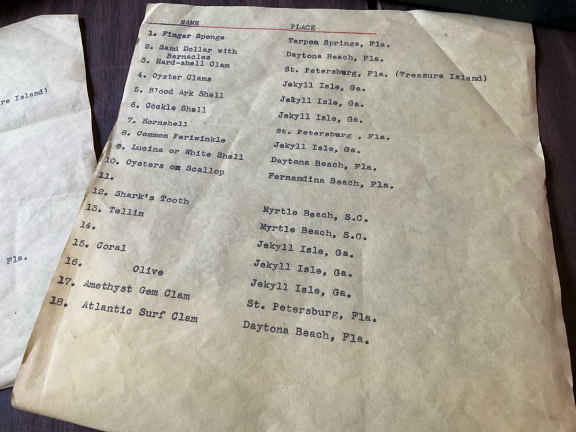 re Island)
Fla.
NAME PLACE
1. Finger Sponge Tarpon Springs, Fla.
2. Sand Dollar with Daytona Beach, Fla.
Barnacles
3. Hard-shell Clam St. Petersburg, Fla. (Treasure Island)
4. Oyster Clams Jekyll Isle, Ga.
5. Blood Ark Shell Jekyll Isle, Ga.
6. Cockle Shell Jekyll Isle, Ga.
7. Hornshell St. Petersburg , Fla.
8. Common Periwinkle Jekyll Isle, Ga.
9. Lucina or White Shell Daytona Beach, Fla.
10. Oysters on Scallop Fernandina Beach, Fla.
11.
12. Shark's Tooth Myrtle Beach, S.C.
13. Tellin Myrtle Beach, S.C.
14. Jekyll Isle, Ga.
15. Coral Jekyll Isle, Ga.
16. Olive Jekyll Isle, Ga.
17. Amethyst Gem Clam St. Petersburg, Fla.
18. Atlantic Surf Clam Daytona Beach, Fla.